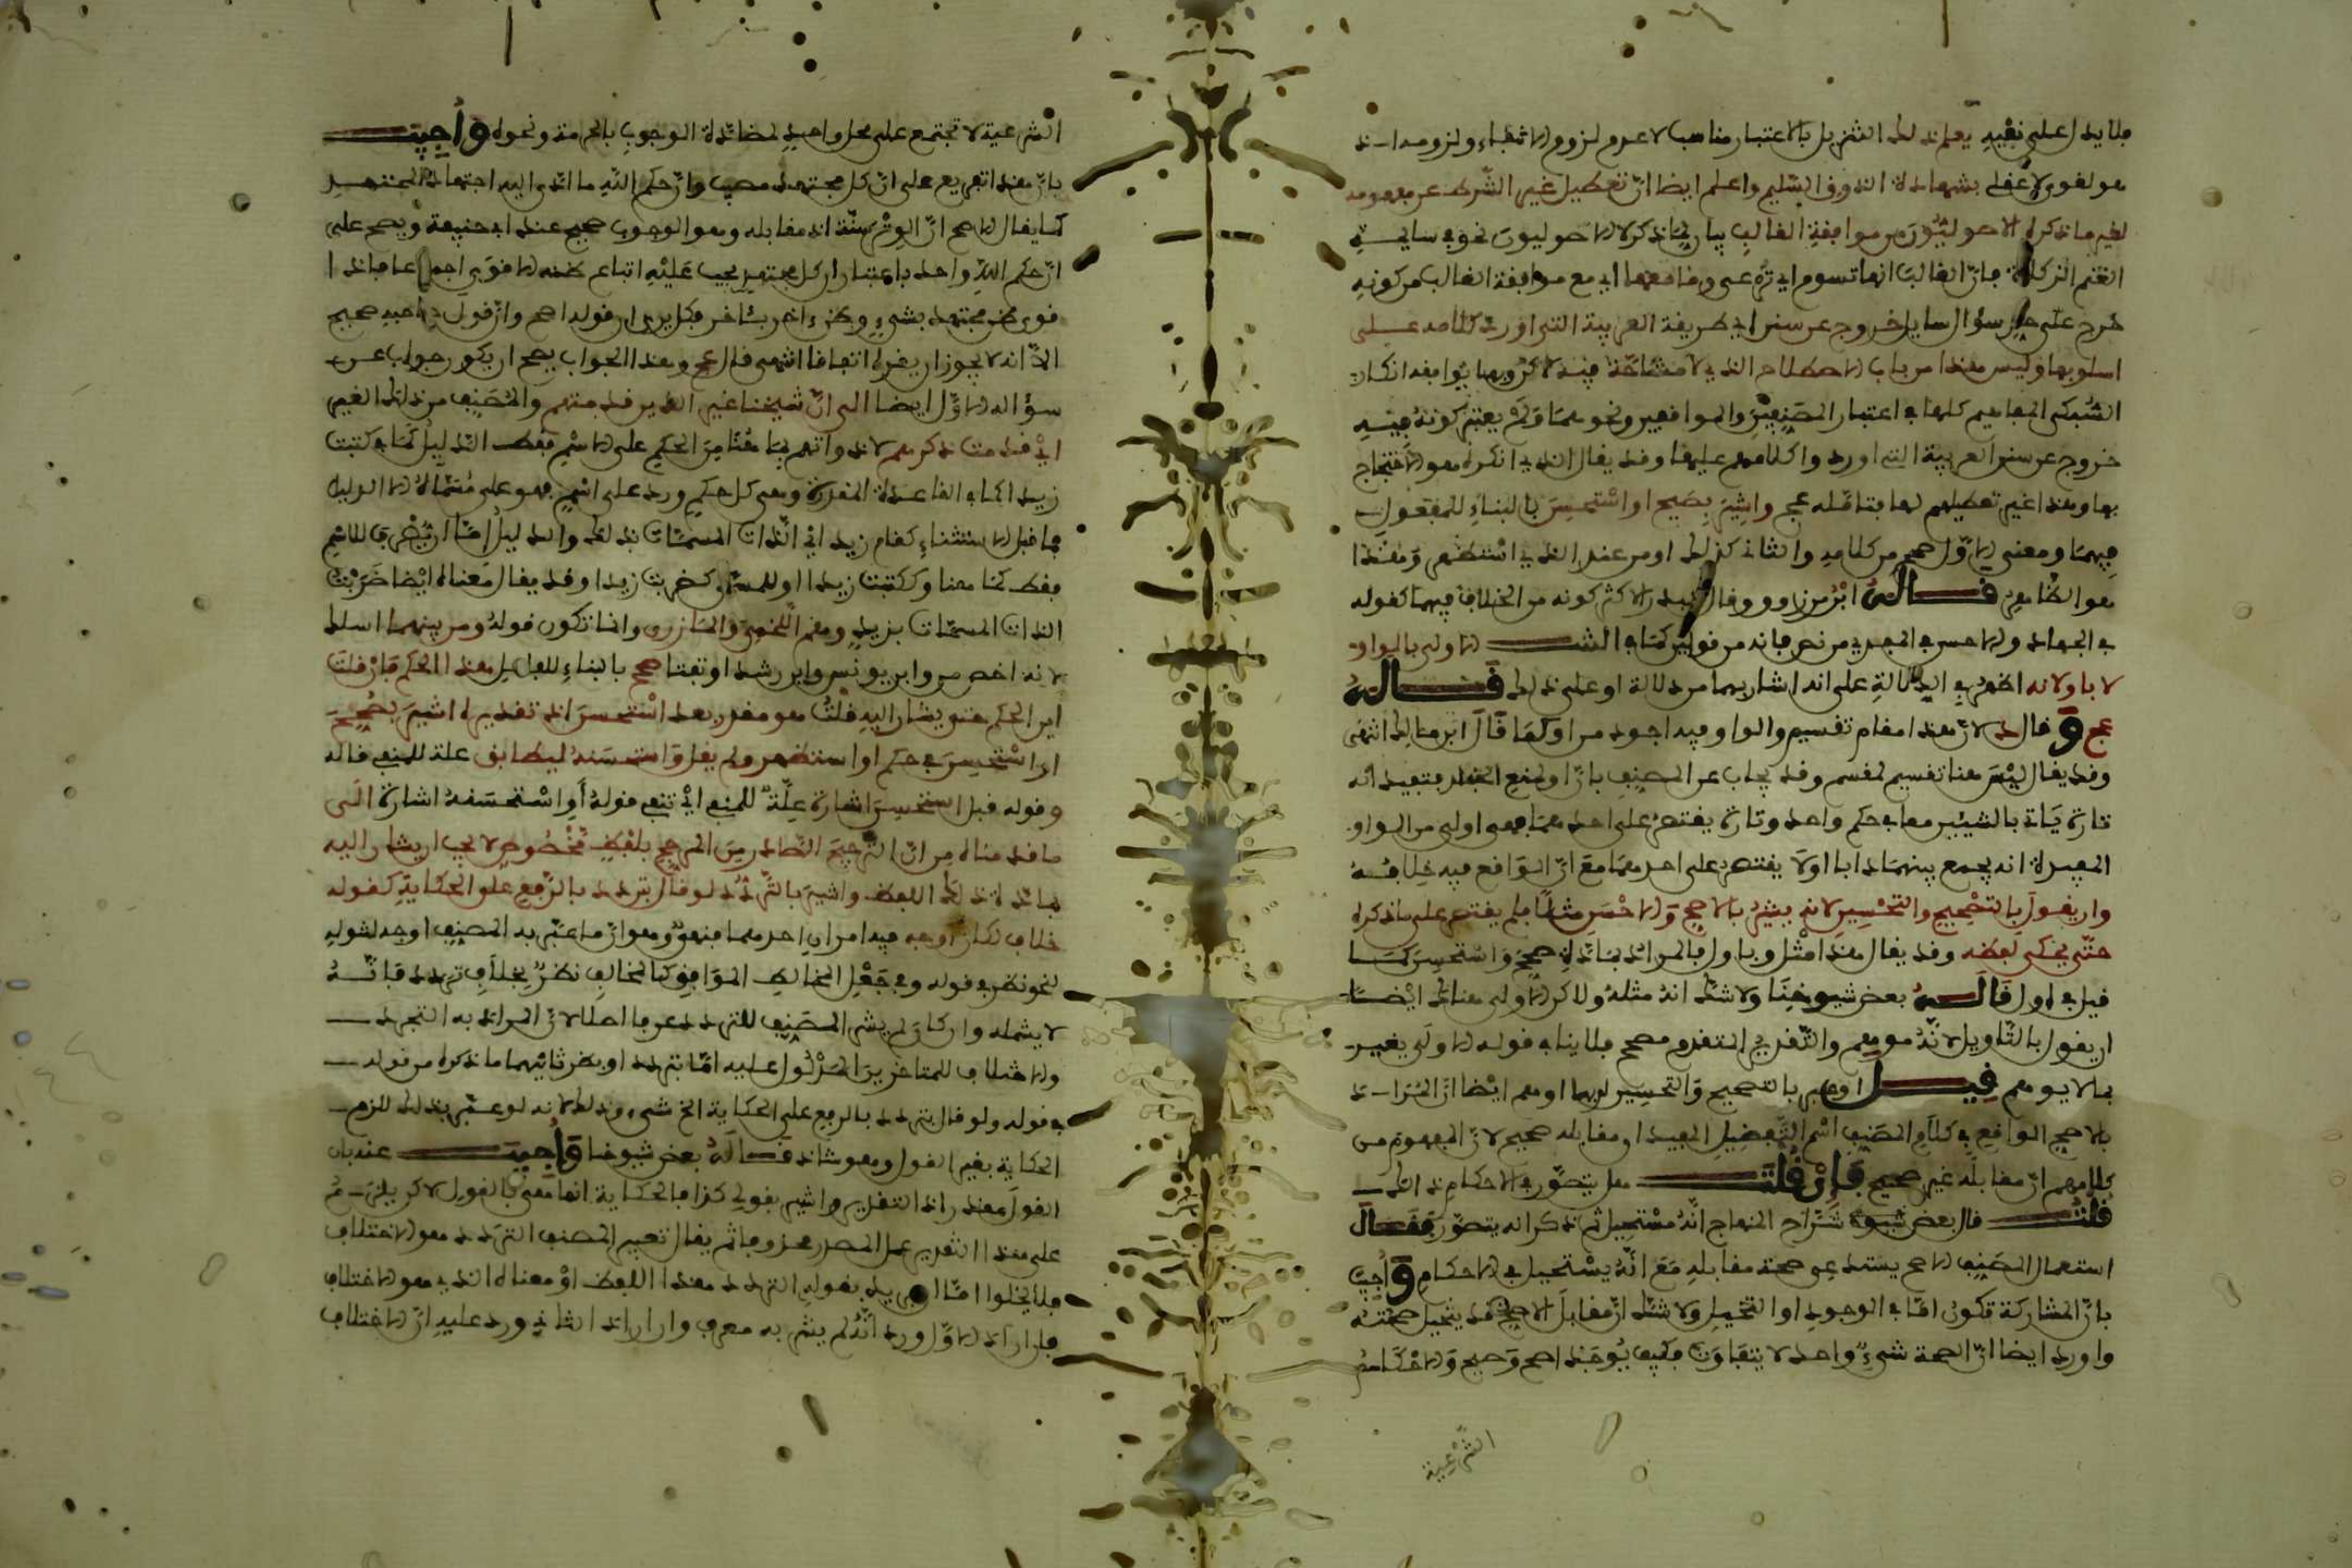 فلا يدل على نفيه يعلم ذلك التنزيل بالاعتبار مناسب لا عدم لزوم الانتفاء ولزومه اذ
هو لغوي لا عقلي بشهادة الذوق السليم واعلم ايضا ان تعطيل غير الشرط عن مفهومه
لغير ما ذكره الاصوليون من موافقة الغالب بيان لما ذكره الاصوليون نحو في سايمة
الغنم الزكاة فان الغالب انها تسوم اي ترعى وما معها اي مع موافقة الغالب من كونه
خرج على سؤال سايل خروج عن سنن اي طريقة العربية التي اورد كلامه على
اسلوبها وليس هذا من باب الاصطلاح الذي لا مشاحة فيه
السبكي المفاهيم كلها في اعتبار المصنفين والموافقين ونحوهما ولم يعتبر كونه فيه
خروج عن سنن العربية التي اوردوا كلامهم عليها وقد يقال الذي انكره هو الاحتجاج
بها وهذا غير تعطيلهم لها بتامله عج واشير بصحح او استحسن بالبناء للمفعول
فيهما ومعنى الاول صح من كلامه والثاني كذلك او من عند الذي استظهر وهذا
هو الظاهر قاله ابن مرزوق وقال كونه من الخلاف فيهما كقوله
في الجهاد والاحسن في المفدي من نص فانه من قول الاولى بالواو
لا باو لانه اظهر في الدلالة على انه اشار بهما من دلالة او على ذلك قاله
عج وقال لان هذا مقام تقسيم والواو فيه اجود من او كما قال ابن مالك انتهى
وقد يقال ليس هنا تقسيم لمقسم وقد يجاب عن المصنف بان او لمنع الخلو فتفيد انه
تارة ياتي بالشيئين معا في حكم واحد وتارة يقتصر على احدهما فهي اولى من الواو
المفيدة انه يجمع بينهما دابا اولا يقتصر على احدهما مع ان الواقع فيه خلافه
وان يقول بالتصحيح والتحسين لانه يشير بالاصح والاحسن مثلا فلم يقتصر على ما ذكره
حتى يحكى لفظه وقد يقال هذا مثل وباول فالمراد بمادة صحح واستحسن كما
قيل في اول قاله بعض شيوخنا ولا شك انه مثله ولاكن الاولى هناك ايضا
ان يقول بالتاويل لانه موهم والتقدير المتقدم مصحح فلا ينافي قوله الاولى يغير
بالا يوهم قيل او عبر بالتصحيح والتحسين لوهم ايضا ان المراد
بالاصح الواقع في كلام المصنف اسم التفضيل المفيد ان مقابله صحيح لان المفهوم من
كلامهم ان مقابله غير صحيح فان قلت هل يتصور في الاحكام ذلك
قلت قال بعض شيوخ شراح المنهاج انه مستحيل ثم ذكر انه يتصور فقال
استعمال المصنف الاصح يستدعي صحة مقابله مع انه يستحيل في الاحكام واجيب
بان المشاركة تكون اما في الوجود او التخيل ولا شك ان مقابل الاصح قد يتخيل صحته
واورد ايضا ان الصحة شيء واحد لا يتفاوت فكيف يوجد اصح وصحيح والاحكام
الشرعية
الشرعية لا تجتمع على محل واحد لمضادة الوجوب بالحرمة ونحوه واجيب
بان هذا تفريع على ان كل مجتهد مصيب وان حكم الله ما ادى اليه اجتهاد المجتهد
كما يقال الاصح ان الوتر سنة اذ مقابله وهو الوجوب صحيح عند ابي حنيفة ويصح على
ان حكم الله واحد باعتبار ان كل مجتهد يجب عليه اتباع ظنه الاقوى اجماعا فاذا
قوي ظن مجتهد بشيء وظن اخر بشيء اخر فكل يرى ان قوله اصح وان قول صاحبه صحيح
الا انه لا يجوز ان يقره اتفاقا انتهى قال عج وهذا الجواب يصح ان يكون جوابا عن
سؤاله الاول ايضا الى ان شيخنا غير الذين قدمتهم والمصنف من ذلك الغير
اي قدمت ذكرهم لا ذواتهم فما هنا من الحكم على الاسم فقط الدليل كما في كتبت
زيدا كما في القاعدة المقررة وهي كل حكم ورد على اسم فهو على مسماه الا لدليل
فما قبل الاستثناء كقام زيد اي الذات المسماة بذلك والدليل اما ان يصرف للاسم
فقط كما هنا وككتبت زيدا او للمسمى كضربت زيدا وقد يقال معناه ايضا ضربت
الذات المسماة بزيد وهم اللخمي والمازري وانما تكون قوله ومن بينهما اسلط
لانه اخص من وابن يونس وابن رشد او تفتا صح بالبناء للفاعل هذا الحكم فان قلت
اين الحكم حتى يشار اليه قلت هو مقدر بعد استحسن اذ تقديره اشير بصحح
او استحسن في حكم او استظهر ولم يقل واستحسنه ليطابق علة للمنع قاله
وقوله قبل استحسن اشارة علة للمنع اي تنع قوله او استحسنه اشارة الى
ما قدمناه من ان الترجيح الصادر من المرجح بلفظ مخصوص لا يجب ان يشار اليه
بمادة ذلك اللفظ واشير بالتردد لو قال بتردد بالرفع على الحكاية كقوله
خلاف لكان اوجه فيه امران احدهما منهو وهو ان ما عبر به المصنف اوجه لشوله
لنحو نظر في قوله وفي جعل المخالط الموافق كالمخالف نظر بخلاف تردد فانه
لا يشمله وان كان لم يشر المصنف للتردد عرفا اصلا لان المراد به التجرد
والاختلاف للمتاخرين المدلول عليه اما بتردد او بنظر ثانيهما ما ذكره من قوله
في قوله ولو قال بتردد بالرفع على الحكاية الخ شيء وذلك لانه لو عبر بذلك للزم
الحكاية بغير القول وهو شاذ قاله بعض شيوخنا واجيب عنه بان
القول مقدر اذ التقدير واشير بقولي كذا فالحكاية انما هي بالقول لاكن يلزم
على هذا التقدير عمل المصدر محذوفا ثم يقال تعبير المصنف التردد هو الاختلاف
فلا يخلوا اما ان يريد بقوله التردد هذا اللفظ او معناه الذي هو الاختلاف
فان اراد الاول ورد انه لم يشر به معرف وان اراد الثاني ورد عليه ان الاختلاف